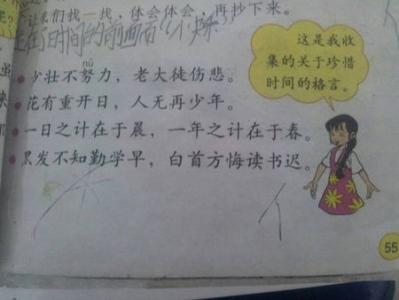 让我们找一找，体会体会，再抄下来。
时间的前面
这是我收
集的关于珍惜
时间的格言。
nǔ
少壮不努力，老大徒伤悲。
花有重开日，人无再少年。
一日之计在于晨，一年之计在于春。
黑发不知勤学早，白首方悔读书迟。
个
55